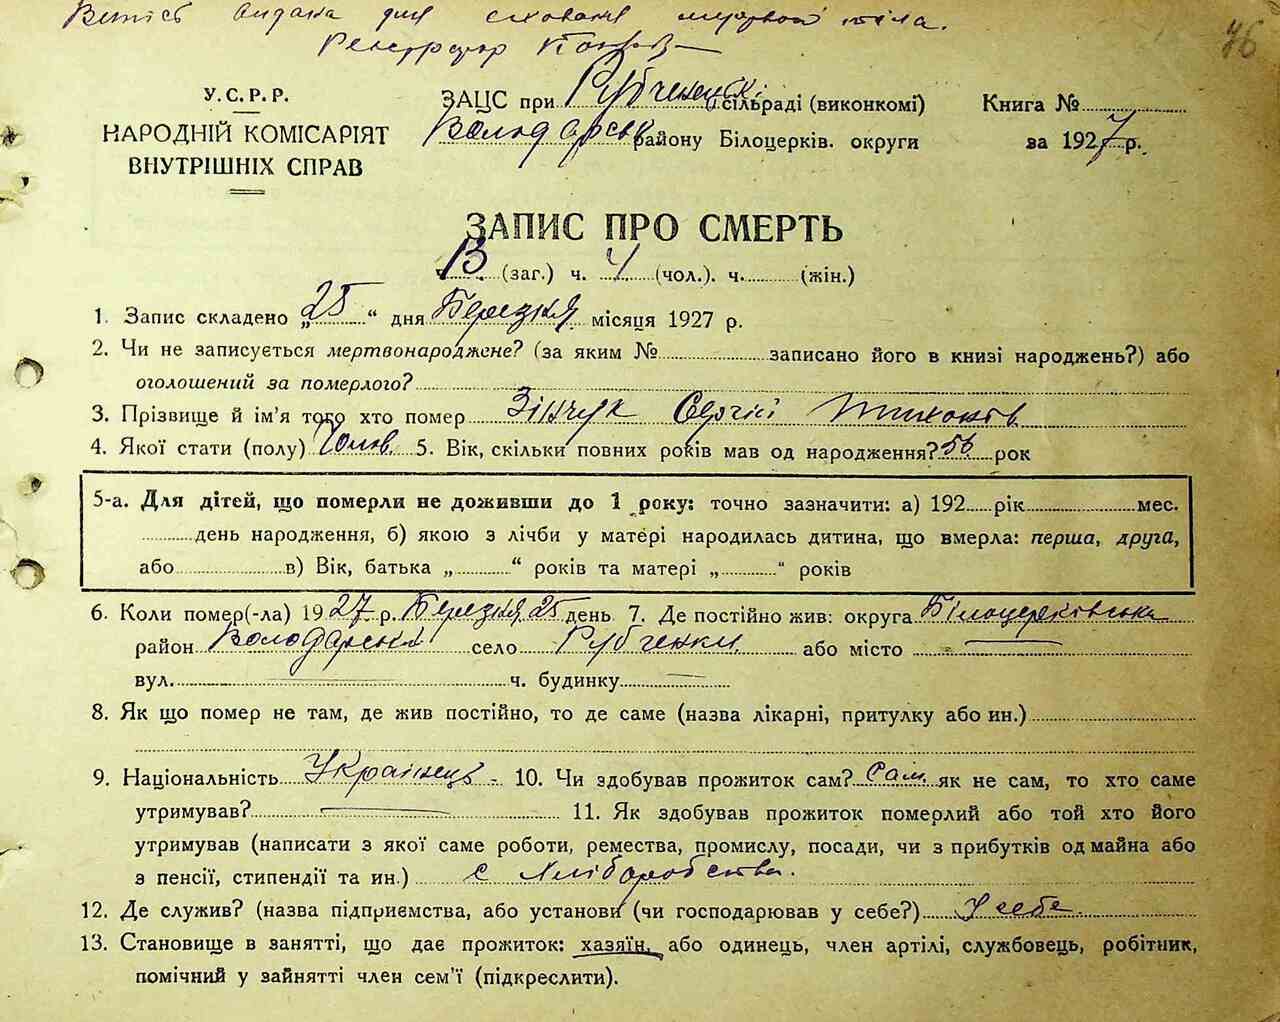 Витяг видана для сховання мертвого тіла.
Реєстратор
76
У.С.Р.Р.
НАРОДНІЙ КОМІСАРІЯТ
ВНУТРІШНІХ СПРАВ
ЗАЦС при Рубченські сільраді (виконкомі)
Володарськ району Білоцерків. округи
Книга №
за 1927 р.
ЗАПИС ПРО СМЕРТЬ
13 (заг.) ч. 4 (чол.). ч. (жін.)
1. Запис складено „25“ дня Березня місяця 1927 р.
2. Чи не записується мертвонароджене? (за яким № записано його в книзі народжень?) або
оголошений за померлого?
3. Прізвище й ім'я того хто помер Зінчук Сергій Тихонів
4. Якої стати (полу) Чолов. 5. Вік, скільки повних років мав од народження? 56 рок
5-а. Для дітей, що померли не доживши до 1 року: точно зазначити: а) 192 рік мес.
день народження, б) якою з лічби у матері народилась дитина, що вмерла: перша, друга,
або в) Вік, батька „ “ років та матері „ “ років
6. Коли помер(-ла) 1927 р. Березня 25 день 7. Де постійно жив: округа Білоцерківська
район Володарський село Рубченки або місто —
вул. — ч. будинку —
8. Як що помер не там, де жив постійно, то де саме (назва лікарні, притулку або ин.)
9. Національність Українець - 10. Чи здобував прожиток сам? Сам. як не сам, то хто саме
утримував? — 11. Як здобував прожиток померлий або той хто його
утримував (написати з якої саме роботи, ремества, промислу, посади, чи з прибутків од майна або
з пенсії, стипендії та ин.) с Хліборобства.
12. Де служив? (назва підприємства, або установи (чи господарював у себе?) У себе
13. Становище в занятті, що дає прожиток: хазяїн, або одинець, член артілі, службовець, робітник,
помічний у зайнятті член сем'ї (підкреслити).